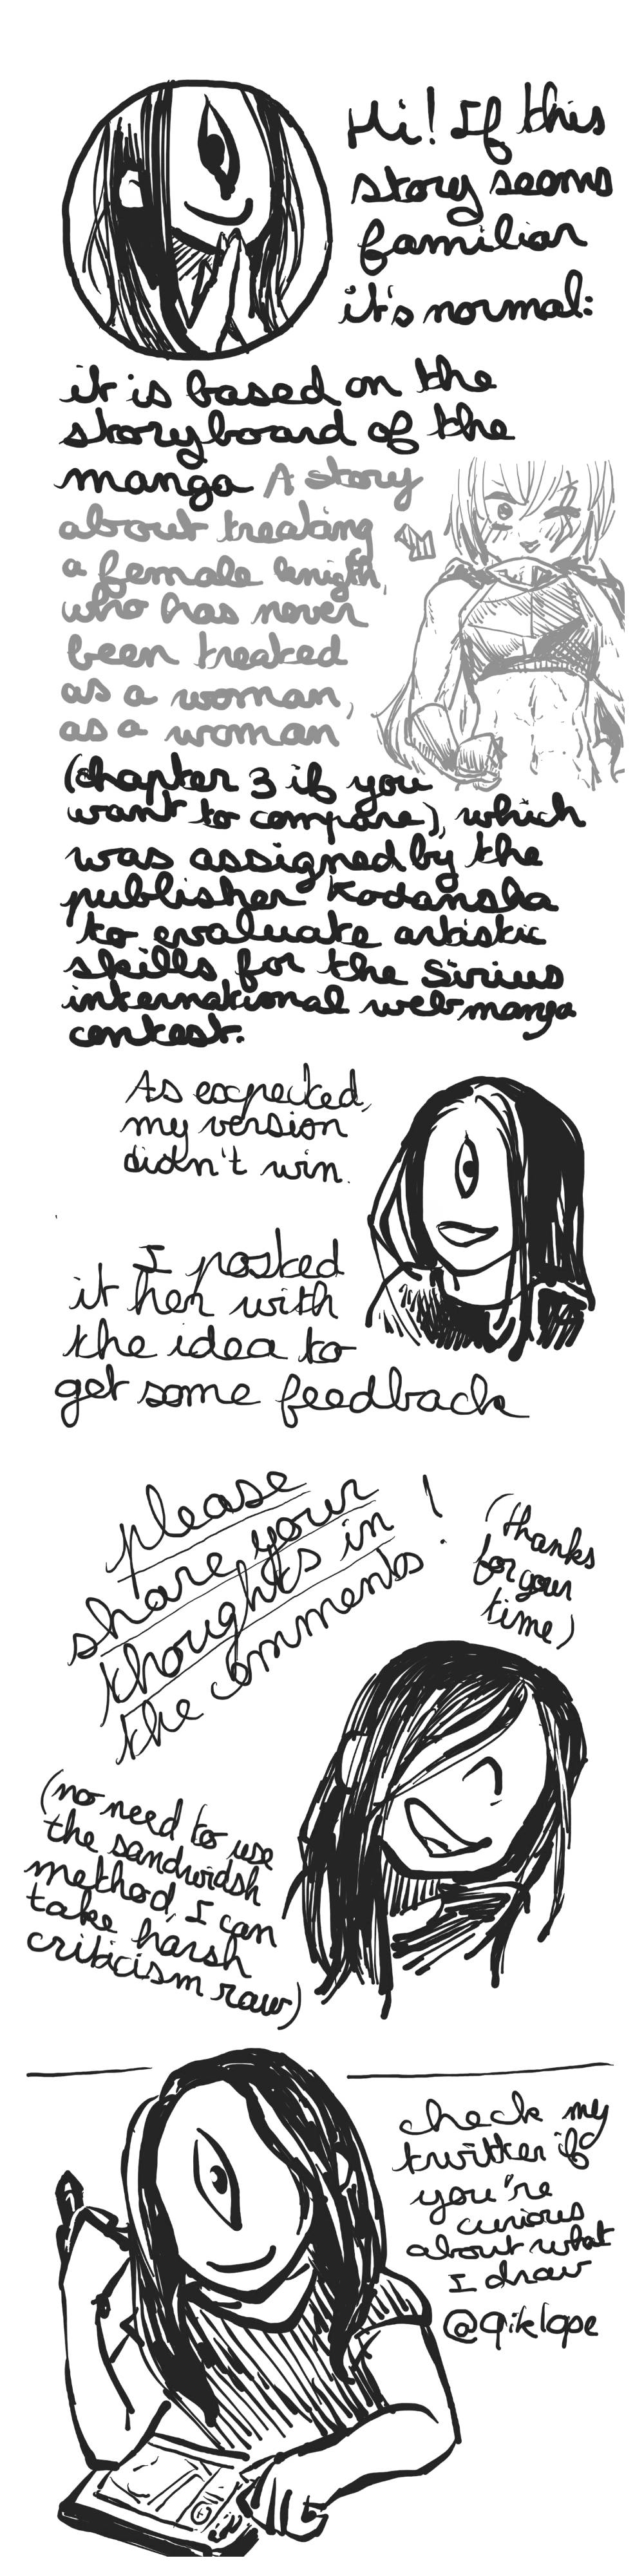 Hi! If this
story seems
familiar
it's normal:
it is based on the
storyboard of the
manga A story
about treating
a female knight,
who has never
been treated
as a woman,
as a woman
(chapter 3 if you
want to compare), which
was assigned by the
publisher Kodansha
to evaluate artistic
skills for the Sirius
international web manga
contest.
As expected,
my version
didn't win.
I posted
it her with
the idea to
get some feedback
please
share your
thoughts in
the comments!
(thanks
for your
time)
(no need to use
the sandwidsh
method, I can
take harsh
criticism raw)
check my
twitter if
you're
curious
about what
I draw
@Qiklope